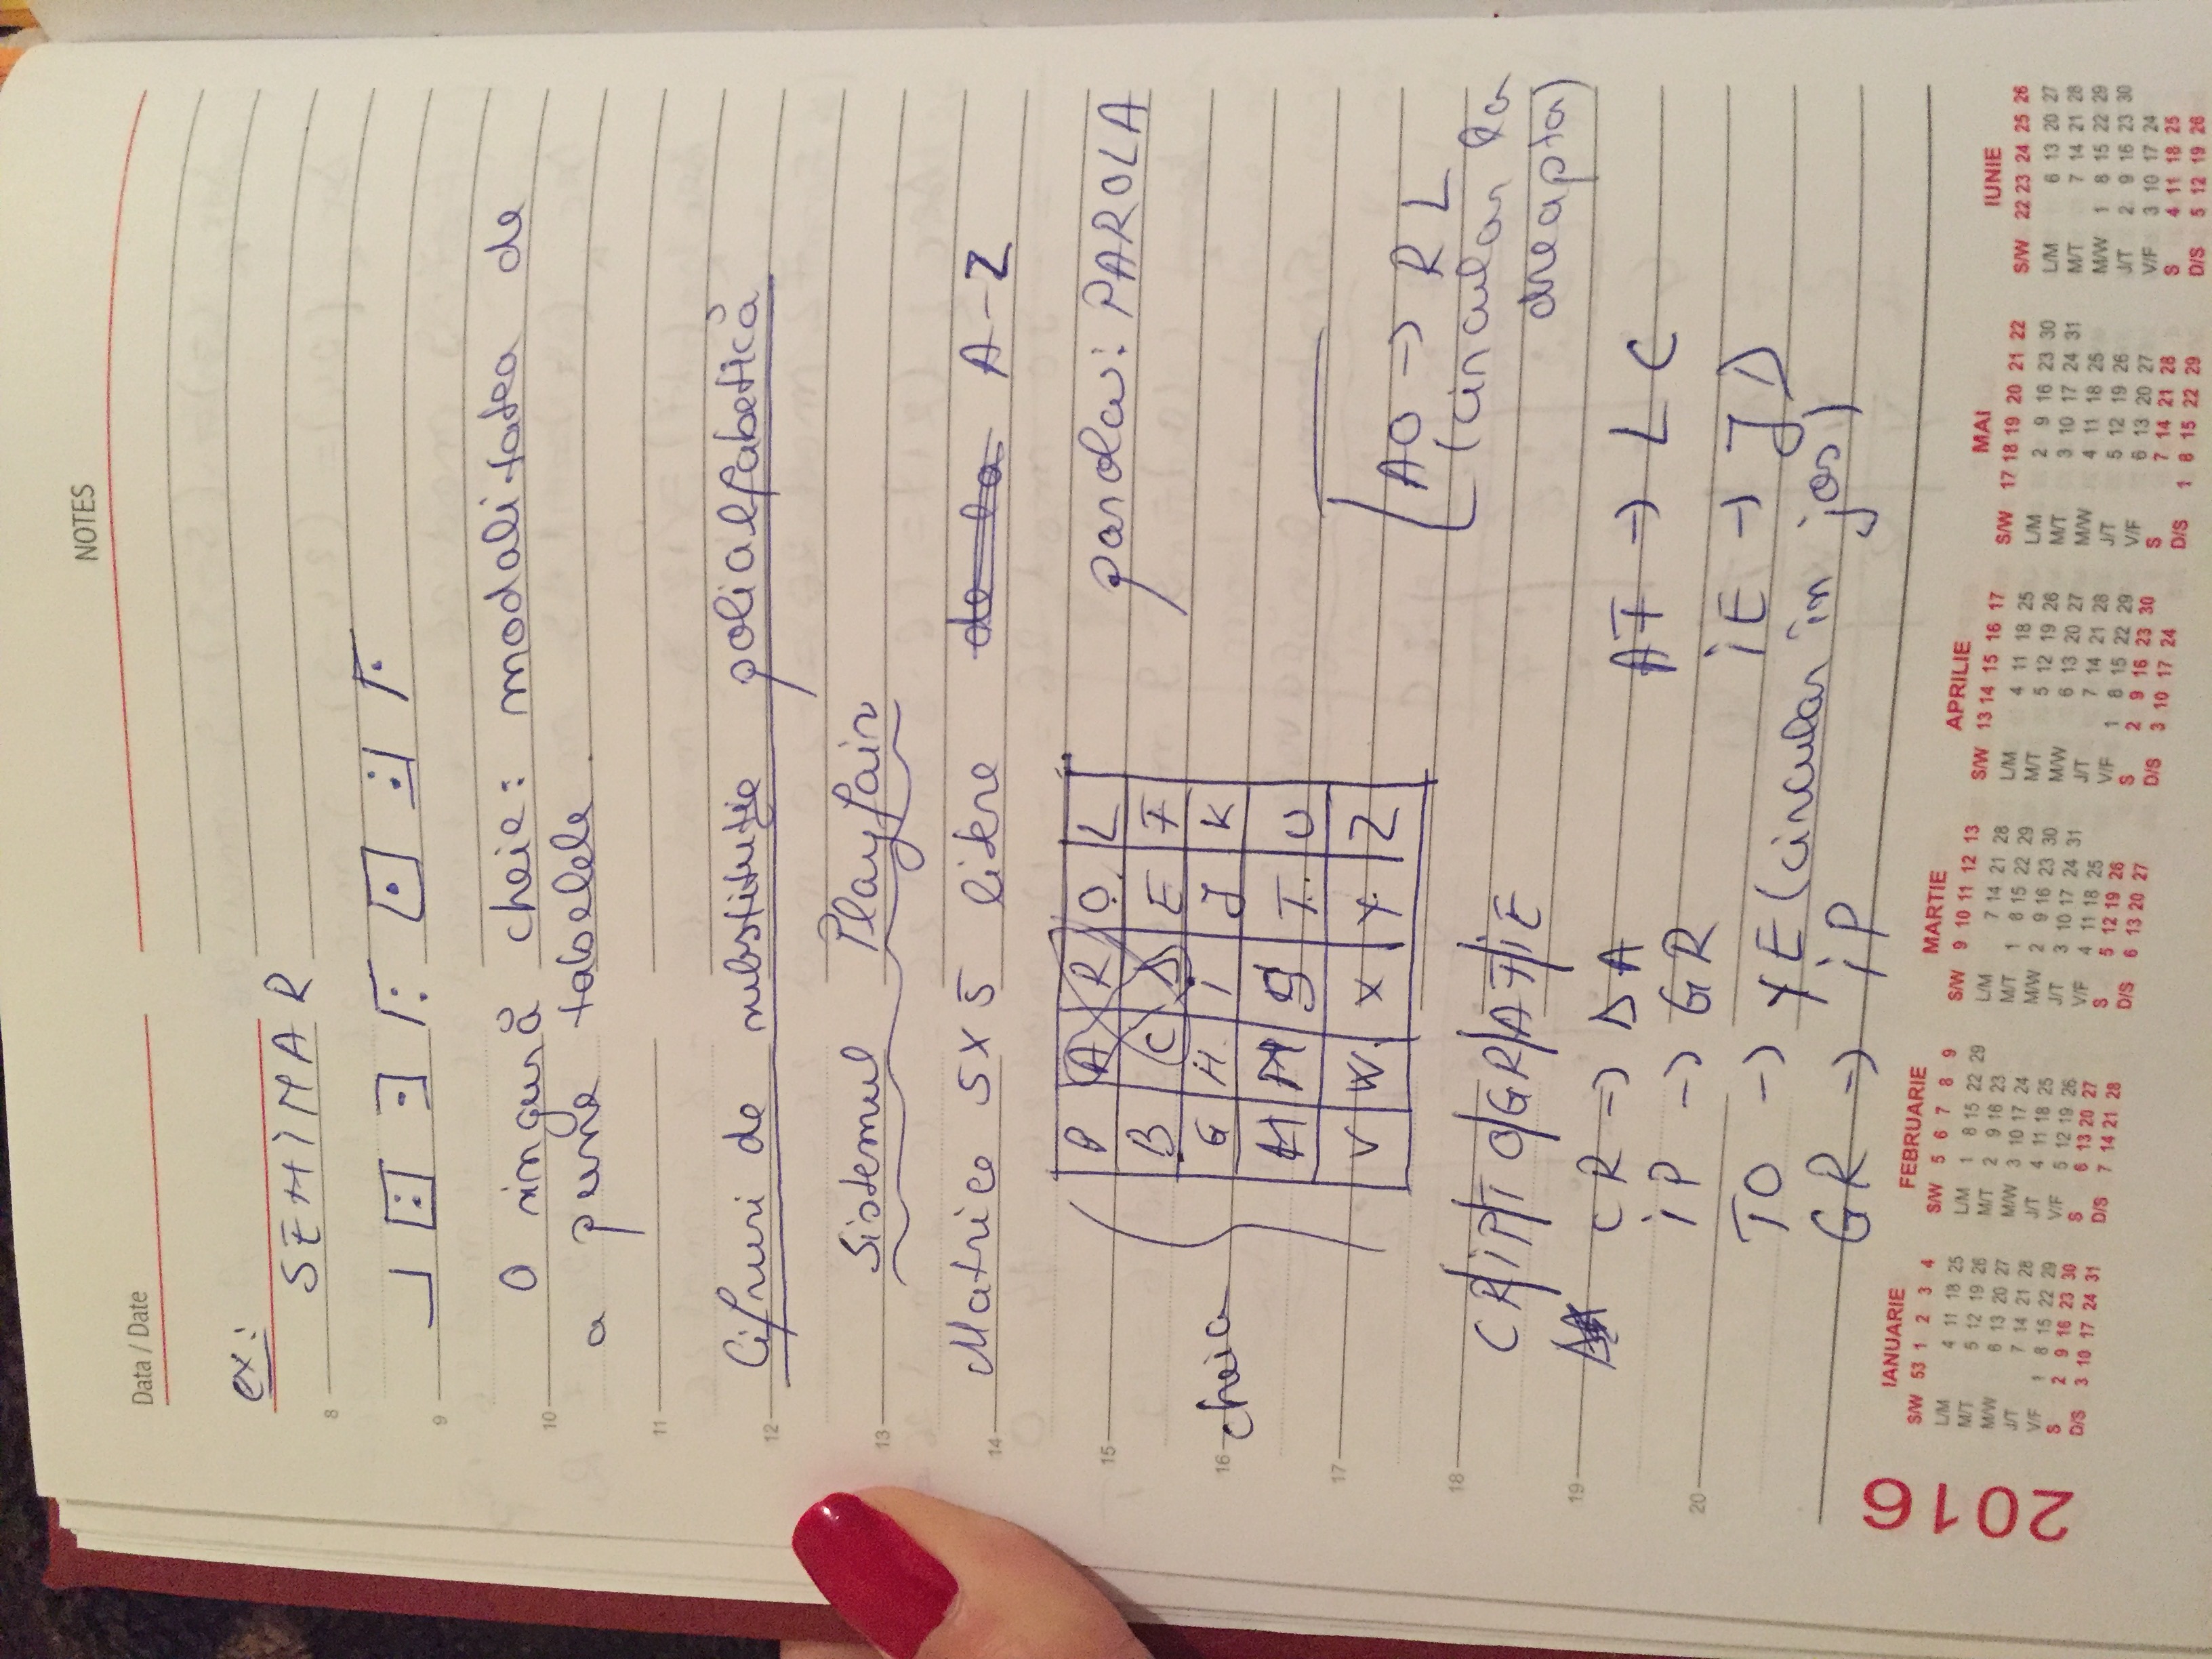 NOTES
Data / Date
ex:
SEMINAR
8
9
O singură cheie: modalitatea de
10
a pune tabelele.
11
Cifruri de substituție polialfabetică
12
Sistemul Playfair
13
Matrice 5x5 litere de la A-Z
14
P A R O L
15
parola: PAROLA
B C D E F
cheia
16
G H I J K
M N S T U
17
V W X Y Z
AO → RL
(circular la
dreapta)
18
CR/IP/TO/GR/AF/IE
19
CR → DA
AF → LC
IP → GR
20
IE → JD
TO → YE (circular în jos)
GR → IP
2016
IANUARIE
S/W 53 1 2 3 4
L/M 4 11 18 25
M/T 5 12 19 26
M/W 6 13 20 27
J/T 7 14 21 28
V/F 1 8 15 22 29
S 2 9 16 23 30
D/S 3 10 17 24 31
FEBRUARIE
S/W 5 6 7 8 9
L/M 1 8 15 22 29
M/T 2 9 16 23
M/W 3 10 17 24
J/T 4 11 18 25
V/F 5 12 19 26
S 6 13 20 27
D/S 7 14 21 28
MARTIE
S/W 9 10 11 12 13
L/M 7 14 21 28
M/T 1 8 15 22 29
M/W 2 9 16 23 30
J/T 3 10 17 24 31
V/F 4 11 18 25
S 5 12 19 26
D/S 6 13 20 27
APRILIE
S/W 13 14 15 16 17
L/M 4 11 18 25
M/T 5 12 19 26
M/W 6 13 20 27
J/T 7 14 21 28
V/F 1 8 15 22 29
S 2 9 16 23 30
D/S 3 10 17 24
MAI
S/W 17 18 19 20 21 22
L/M 2 9 16 23 30
M/T 3 10 17 24 31
M/W 4 11 18 25
J/T 5 12 19 26
V/F 6 13 20 27
S 7 14 21 28
D/S 1 8 15 22 29
IUNIE
S/W 22 23 24 25 26
L/M 6 13 20 27
M/T 7 14 21 28
M/W 1 8 15 22 29
J/T 2 9 16 23 30
V/F 3 10 17 24
S 4 11 18 25
D/S 5 12 19 26